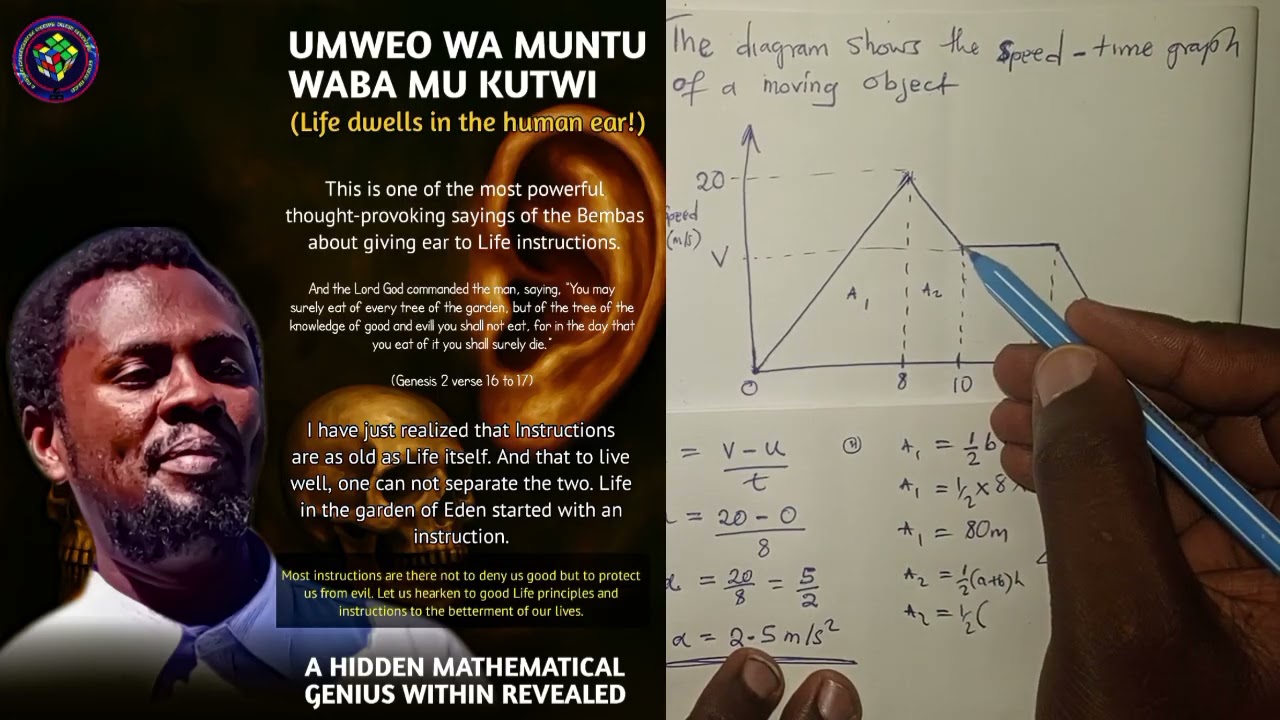 UMWEO WA MUNTU
WABA MU KUTWI
(Life dwells in the human ear!)
This is one of the most powerful
thought-provoking sayings of the Bembas
about giving ear to Life instructions.
And the Lord God commanded the man, saying, "You may
surely eat of every tree of the garden, but of the tree of the
knowledge of good and evill you shall not eat, for in the day that
you eat of it you shall surely die."
(Genesis 2 verse 16 to 17)
I have just realized that Instructions
are as old as Life itself. And that to live
well, one can not separate the two. Life
in the garden of Eden started with an
instruction.
Most instructions are there not to deny us good but to protect
us from evil. Let us hearken to good Life principles and
instructions to the betterment of our lives.
A HIDDEN MATHEMATICAL
GENIUS WITHIN REVEALED
The diagram shows the speed-time graph
of a moving object
20
speed
(m/s)
V
A₁
A₂
0
8
10
= v - u / t
= 20 - 0 / 8
a = 20/8 = 5/2
a = 2.5 m/s²
A₁ = ½ b
A₁ = ½ × 8 ×
A₁ = 80m
A₂ = ½(a+b)h
A₂ = ½(